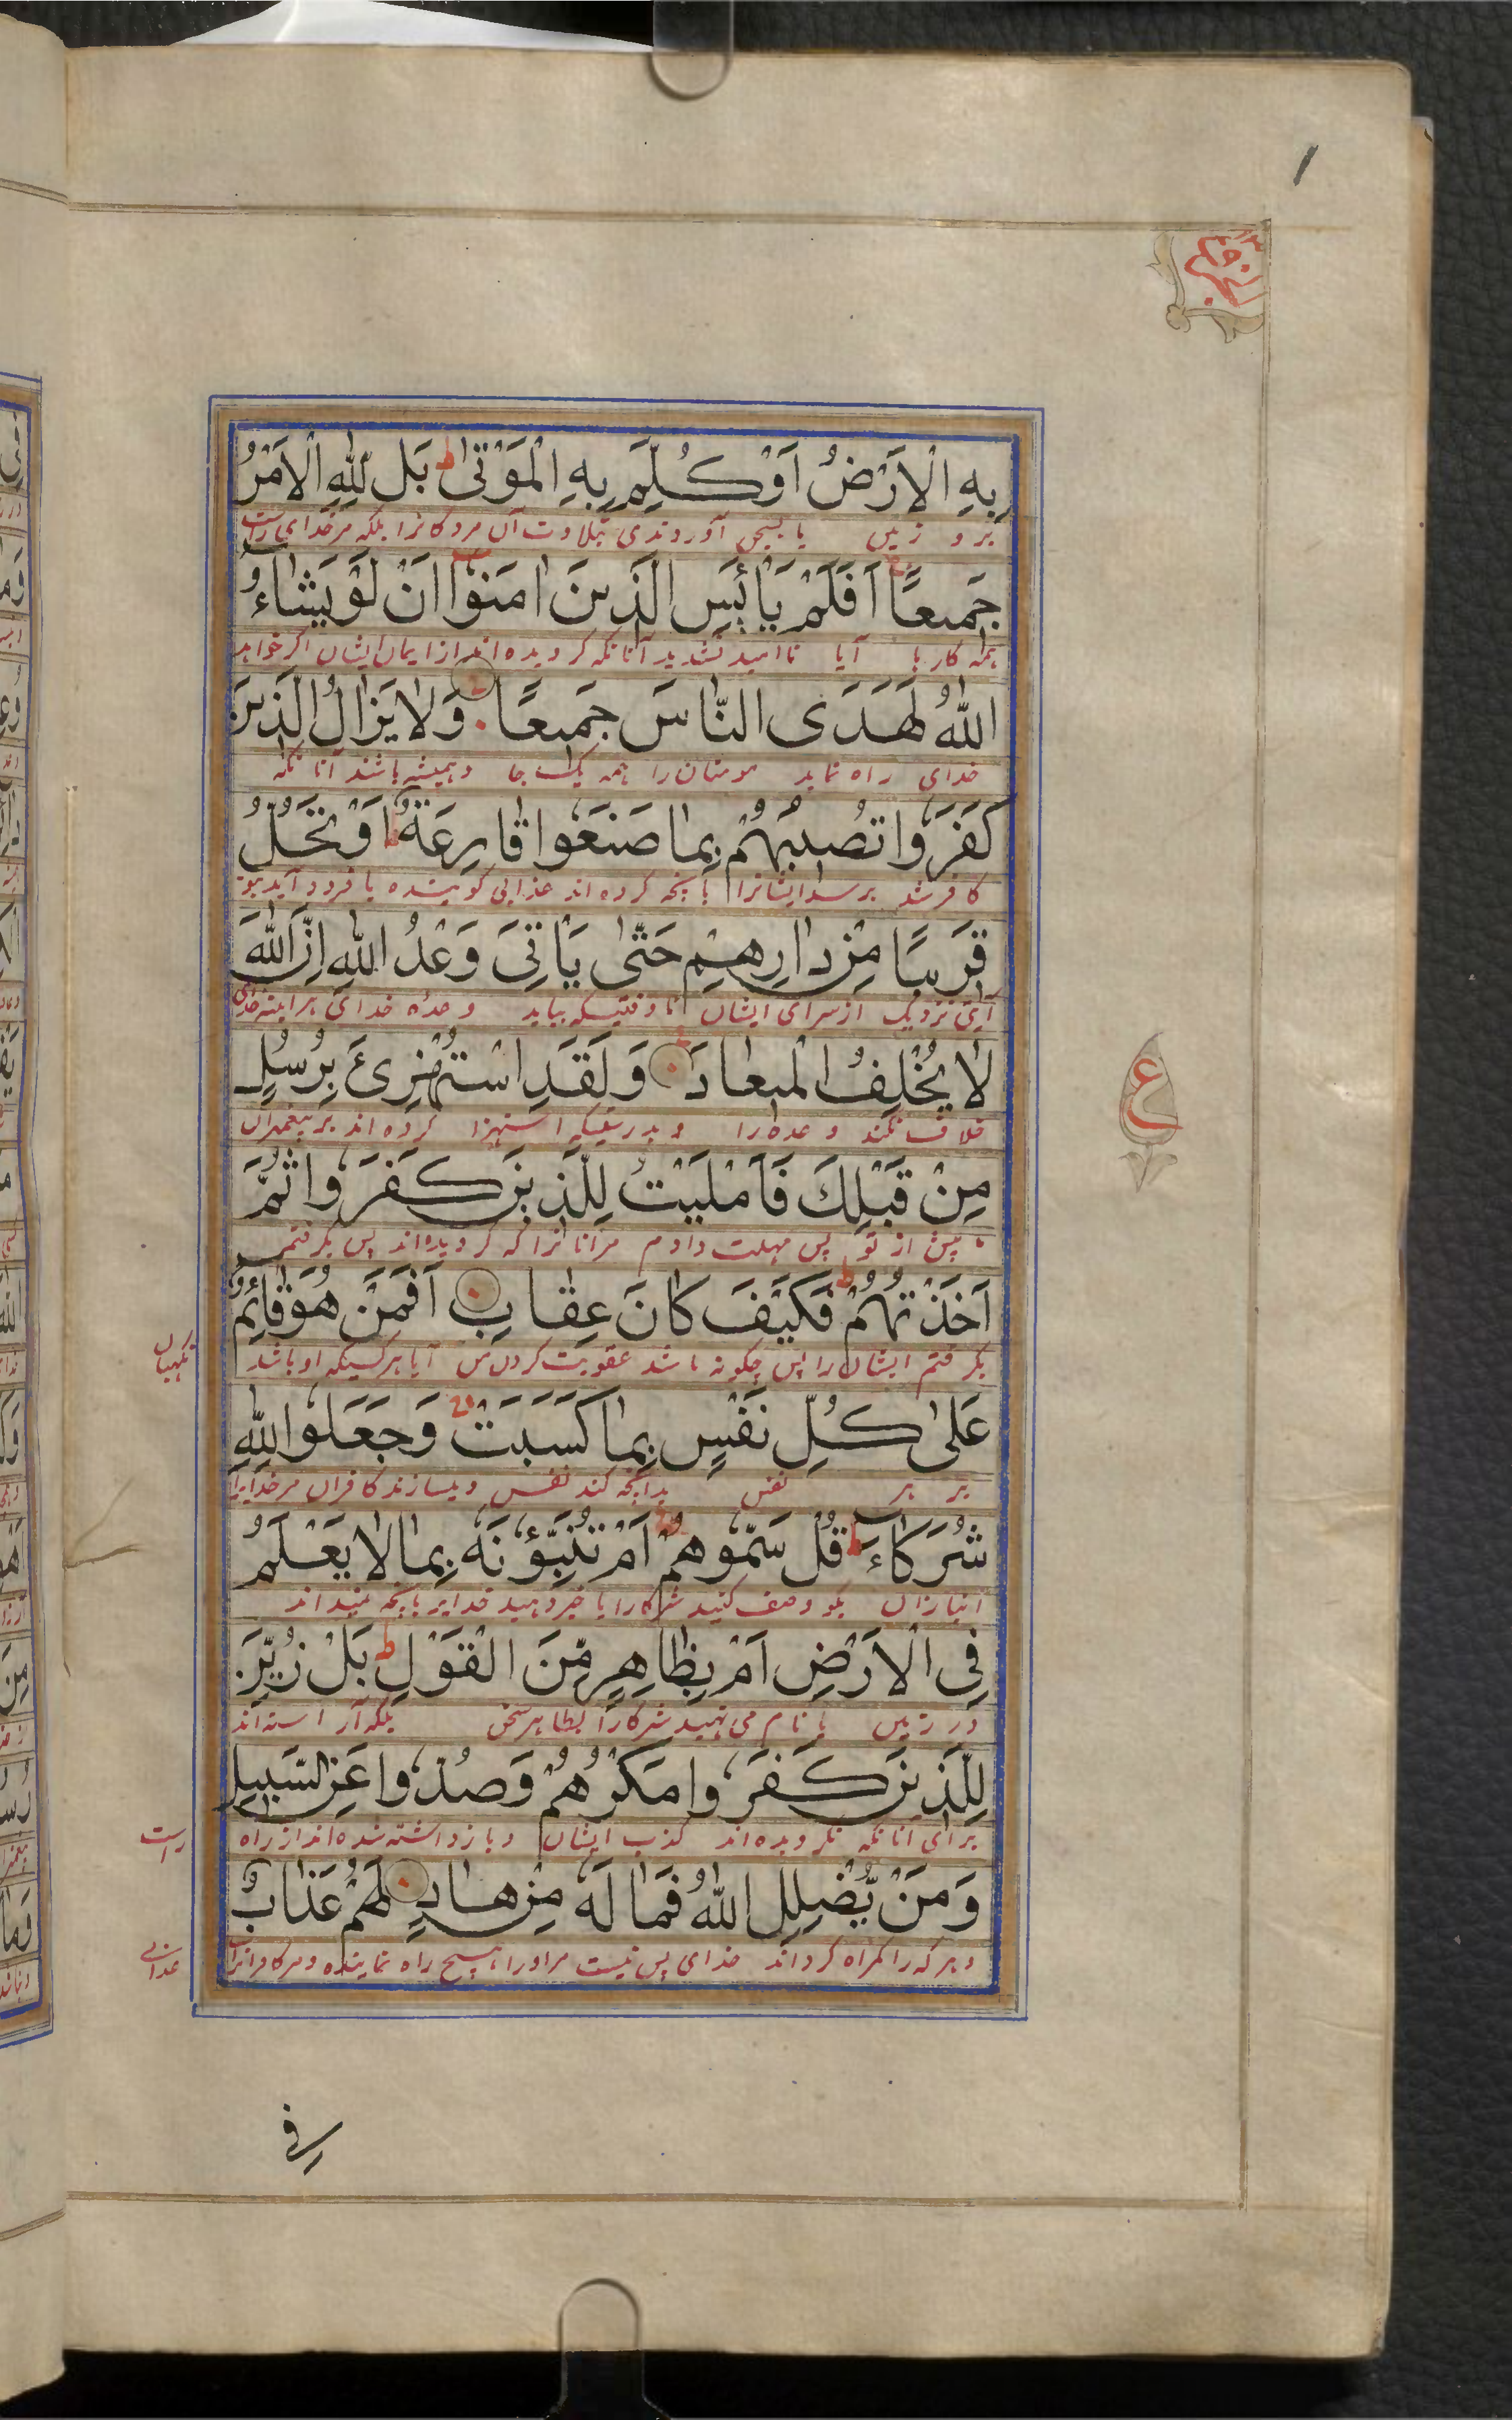 بِهِ الْاَرْضُ اَوْ كُلِّمَ بِهِ الْمَوْتٰى ط بَل لِلّٰهِ الْاَمْرُ
جَمِيعًا اَفَلَمْ يَايْئَسِ الَّذِينَ اٰمَنُوْا اَنْ لَوْ يَشَاءُ
همه کارها آیا ناامید نشدید آنانکه گرویده اند از ایمان ایشان اگر خواهد
اللّٰهُ لَهَدَى النَّاسَ جَمِيعًا وَلَا يَزَالُ الَّذِينَ
خدای راه نماید مومنان را همه یک جا و همیشه باشند آنانکه
كَفَرُوا تُصِيبُهُمْ بِمَا صَنَعُوا قَارِعَةٌ اَوْ تَحُلُّ
کافر شد برسد ایشانرا بانچه کرده اند عذابی کوبنده یا فرود آید
قَرِيبًا مِنْ دَارِهِمْ حَتّٰى يَاْتِيَ وَعْدُ اللّٰهِ اِنَّ اللّٰهَ
نزدیک از سرای ایشان تا وقتیکه بیاید وعده خدای هر اینه خدای
لَا يُخْلِفُ الْمِيعَادَ وَلَقَدِ اسْتُهْزِئَ بِرُسُلٍ
خلاف نکند وعده را و بدرستیکه استهزا کرده اند بر پیغمبران
مِنْ قَبْلِكَ فَاَمْلَيْتُ لِلَّذِينَ كَفَرُوا ثُمَّ
پیش از تو پس مهلت دادم مرانانرا که گرویده اند پس بگرفتم
اَخَذْتُهُمْ ط فَكَيْفَ كَانَ عِقَابِ اَفَمَنْ هُوَ قَائِمٌ
بگرفتم ایشان را پس چگونه باشد عقوبت کردن من آیا هر کسیکه او باشد نگهبان
عَلٰى كُلِّ نَفْسٍ بِمَا كَسَبَتْ وَجَعَلُوا لِلّٰهِ
بر هر نفس بدانچه کند نفس و میسازند کافران مر خدایرا
شُرَكَاءَ ط قُلْ سَمُّوهُمْ اَمْ تُنَبِّؤُنَهُ بِمَا لَا يَعْلَمُ
انبازان بگو وصف کنید شرکا را یا خبر دهید خدایر بانچه نمیداند
فِي الْاَرْضِ اَمْ بِظَاهِرٍ مِّنَ الْقَوْلِ ط بَلْ زُيِّنَ
در زمین یا نام می نهید شرکارا بظاهر سخن بلکه آراسته اند
لِلَّذِينَ كَفَرُوا مَكْرُهُمْ وَصُدُّوا عَنِ السَّبِيلِ
برای انانکه نگرویده اند کذب ایشان و بازداشته شده اند از راه راست
وَمَنْ يُّضْلِلِ اللّٰهُ فَمَا لَهُ مِنْ هَادٍ لَهُمْ عَذَابٌ
و هر که را گمراه گرداند خدای پس نیست مر اورا هیچ راه نماینده و مر کافرانراست عذابی
ع
فی